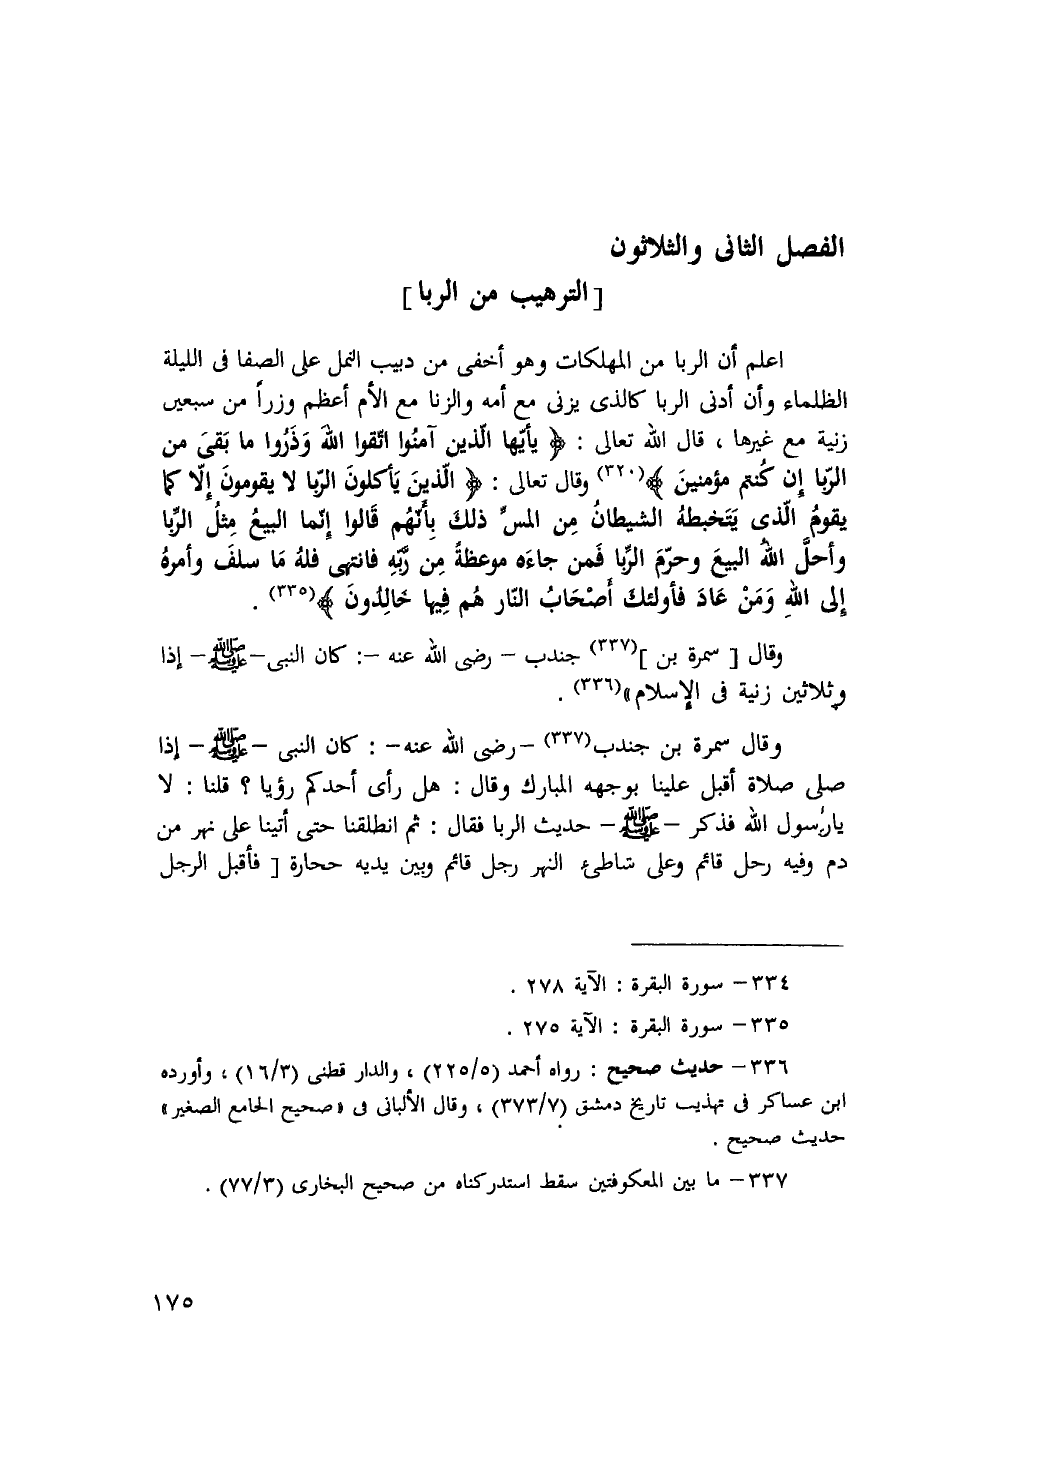 الفصل الثانى والثلاثون
[ الترهيب من الربا ]
اعلم أن الربا من المهلكات وهو أخفى من دبيب النمل على الصفا فى الليلة
الظلماء وأن أدنى الربا كالذى يزنى مع أمه والزنا مع الأم أعظم وزراً من سبعين
زنية مع غيرها ، قال الله تعالى : ﴿ يأيّها الّذين آمنُوا اتّقوا اللهَ وَذَرُوا ما بَقىَ من
الرّبا إِن كُنتم مؤمنينَ ﴾(٣٢٠) وقال تعالى : ﴿ الّذينَ يَأكلونَ الرّبا لا يقومونَ إِلّا كما
يقومُ الّذى يَتَخبطهُ الشيطانُ مِن المسِّ ذلكَ بِأَنّهُم قَالوا إنّما البيعُ مِثلُ الرِّبا
وأحلَّ اللهُ البيعَ وحرّمَ الرِّبا فَمن جاءَه موعظةً مِن رَّبّهِ فانتهى فلهُ مَا سلفَ وأمرهُ
إلى اللهِ وَمَنْ عَادَ فأولئكَ أَصْحَابُ النّار هُم فِيها خَالِدُونَ ﴾(٣٣٥) .
وقال [ سمرة بن ](٣٣٧) جندب – رضى الله عنه –: كان النبى–ﷺ– إذا
وثلاثين زنية فى الإسلام»(٣٣٦) .
وقال سمرة بن جندب(٣٣٧) –رضى الله عنه– : كان النبى –ﷺ– إذا
صلى صلاة أقبل علينا بوجهه المبارك وقال : هل رأى أحدكم رؤيا ؟ قلنا : لا
يارسول الله فذكر –ﷺ– حديث الربا فقال : ثم انطلقنا حتى أتينا على نهر من
دم وفيه رحل قائم وعلى شاطئ النهر رجل قائم وبين يديه ححارة [ فأقبل الرجل
٣٣٤– سورة البقرة : الآية ٢٧٨ .
٣٣٥– سورة البقرة : الآية ٢٧٥ .
٣٣٦– حديث صحيح : رواه أحمد (٢٢٥/٥) ، والدار قطنى (١٦/٣) ، وأورده
ابن عساكر فى تهذيب تاريخ دمشق (٣٧٣/٧) ، وقال الألبانى فى «صحيح الجامع الصغير»
حديث صحيح .
٣٣٧– ما بين المعكوفتين سقط استدركناه من صحيح البخارى (٧٧/٣) .
١٧٥